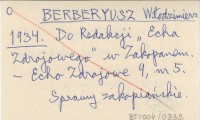 BERBERYUSZ Włodzimierz
1934. Do Redakcji „Echa
Zdrojowego" w Zakopanem.
– Echo Zdrojowe 9, nr 5.
Sprawy zakopiańskie.